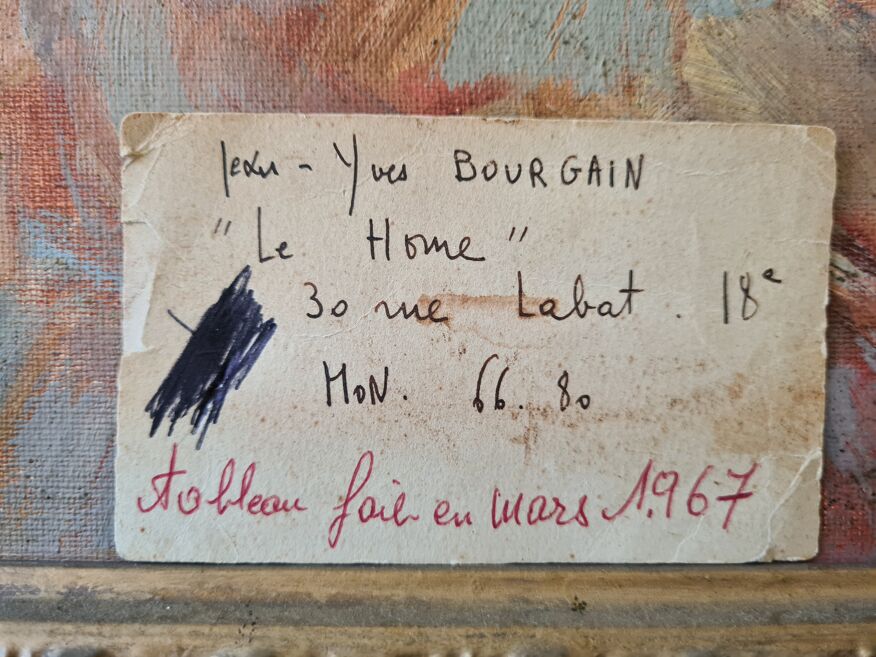 Jean - Yves BOURGAIN
"Le Home"
30 rue Labat. 18e
MON. 66.80
tableau fait en mars 1.967